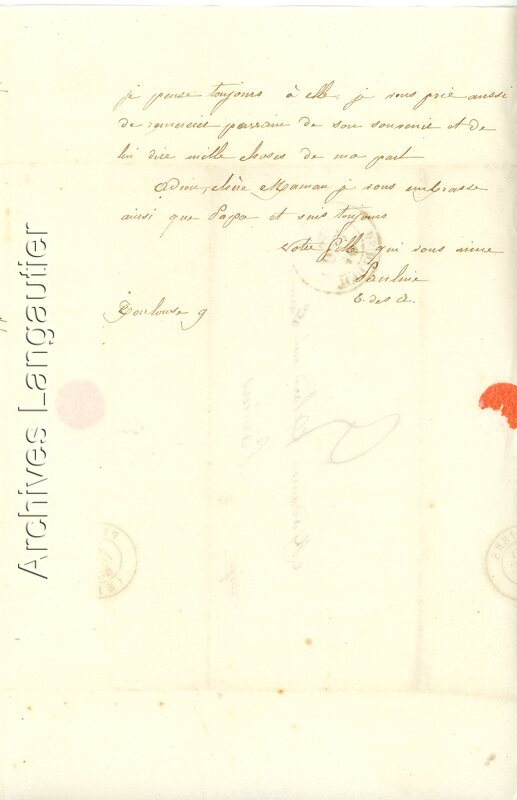 je pense toujours à elle. je vous prie aussi
de remercier parraine de son souvenir et de
lui dire mille choses de ma part
Adieu, chère Maman je vous embrasse
ainsi que Papa et suis toujours
votre fille qui vous aime
Pauline
E. des A.
Toulouse 9
Archives Langautier